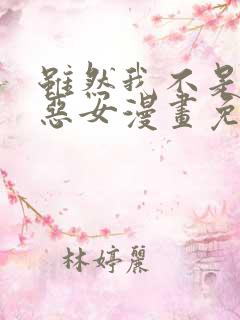 雖然我不是
惡女漫畫免
林婷麗